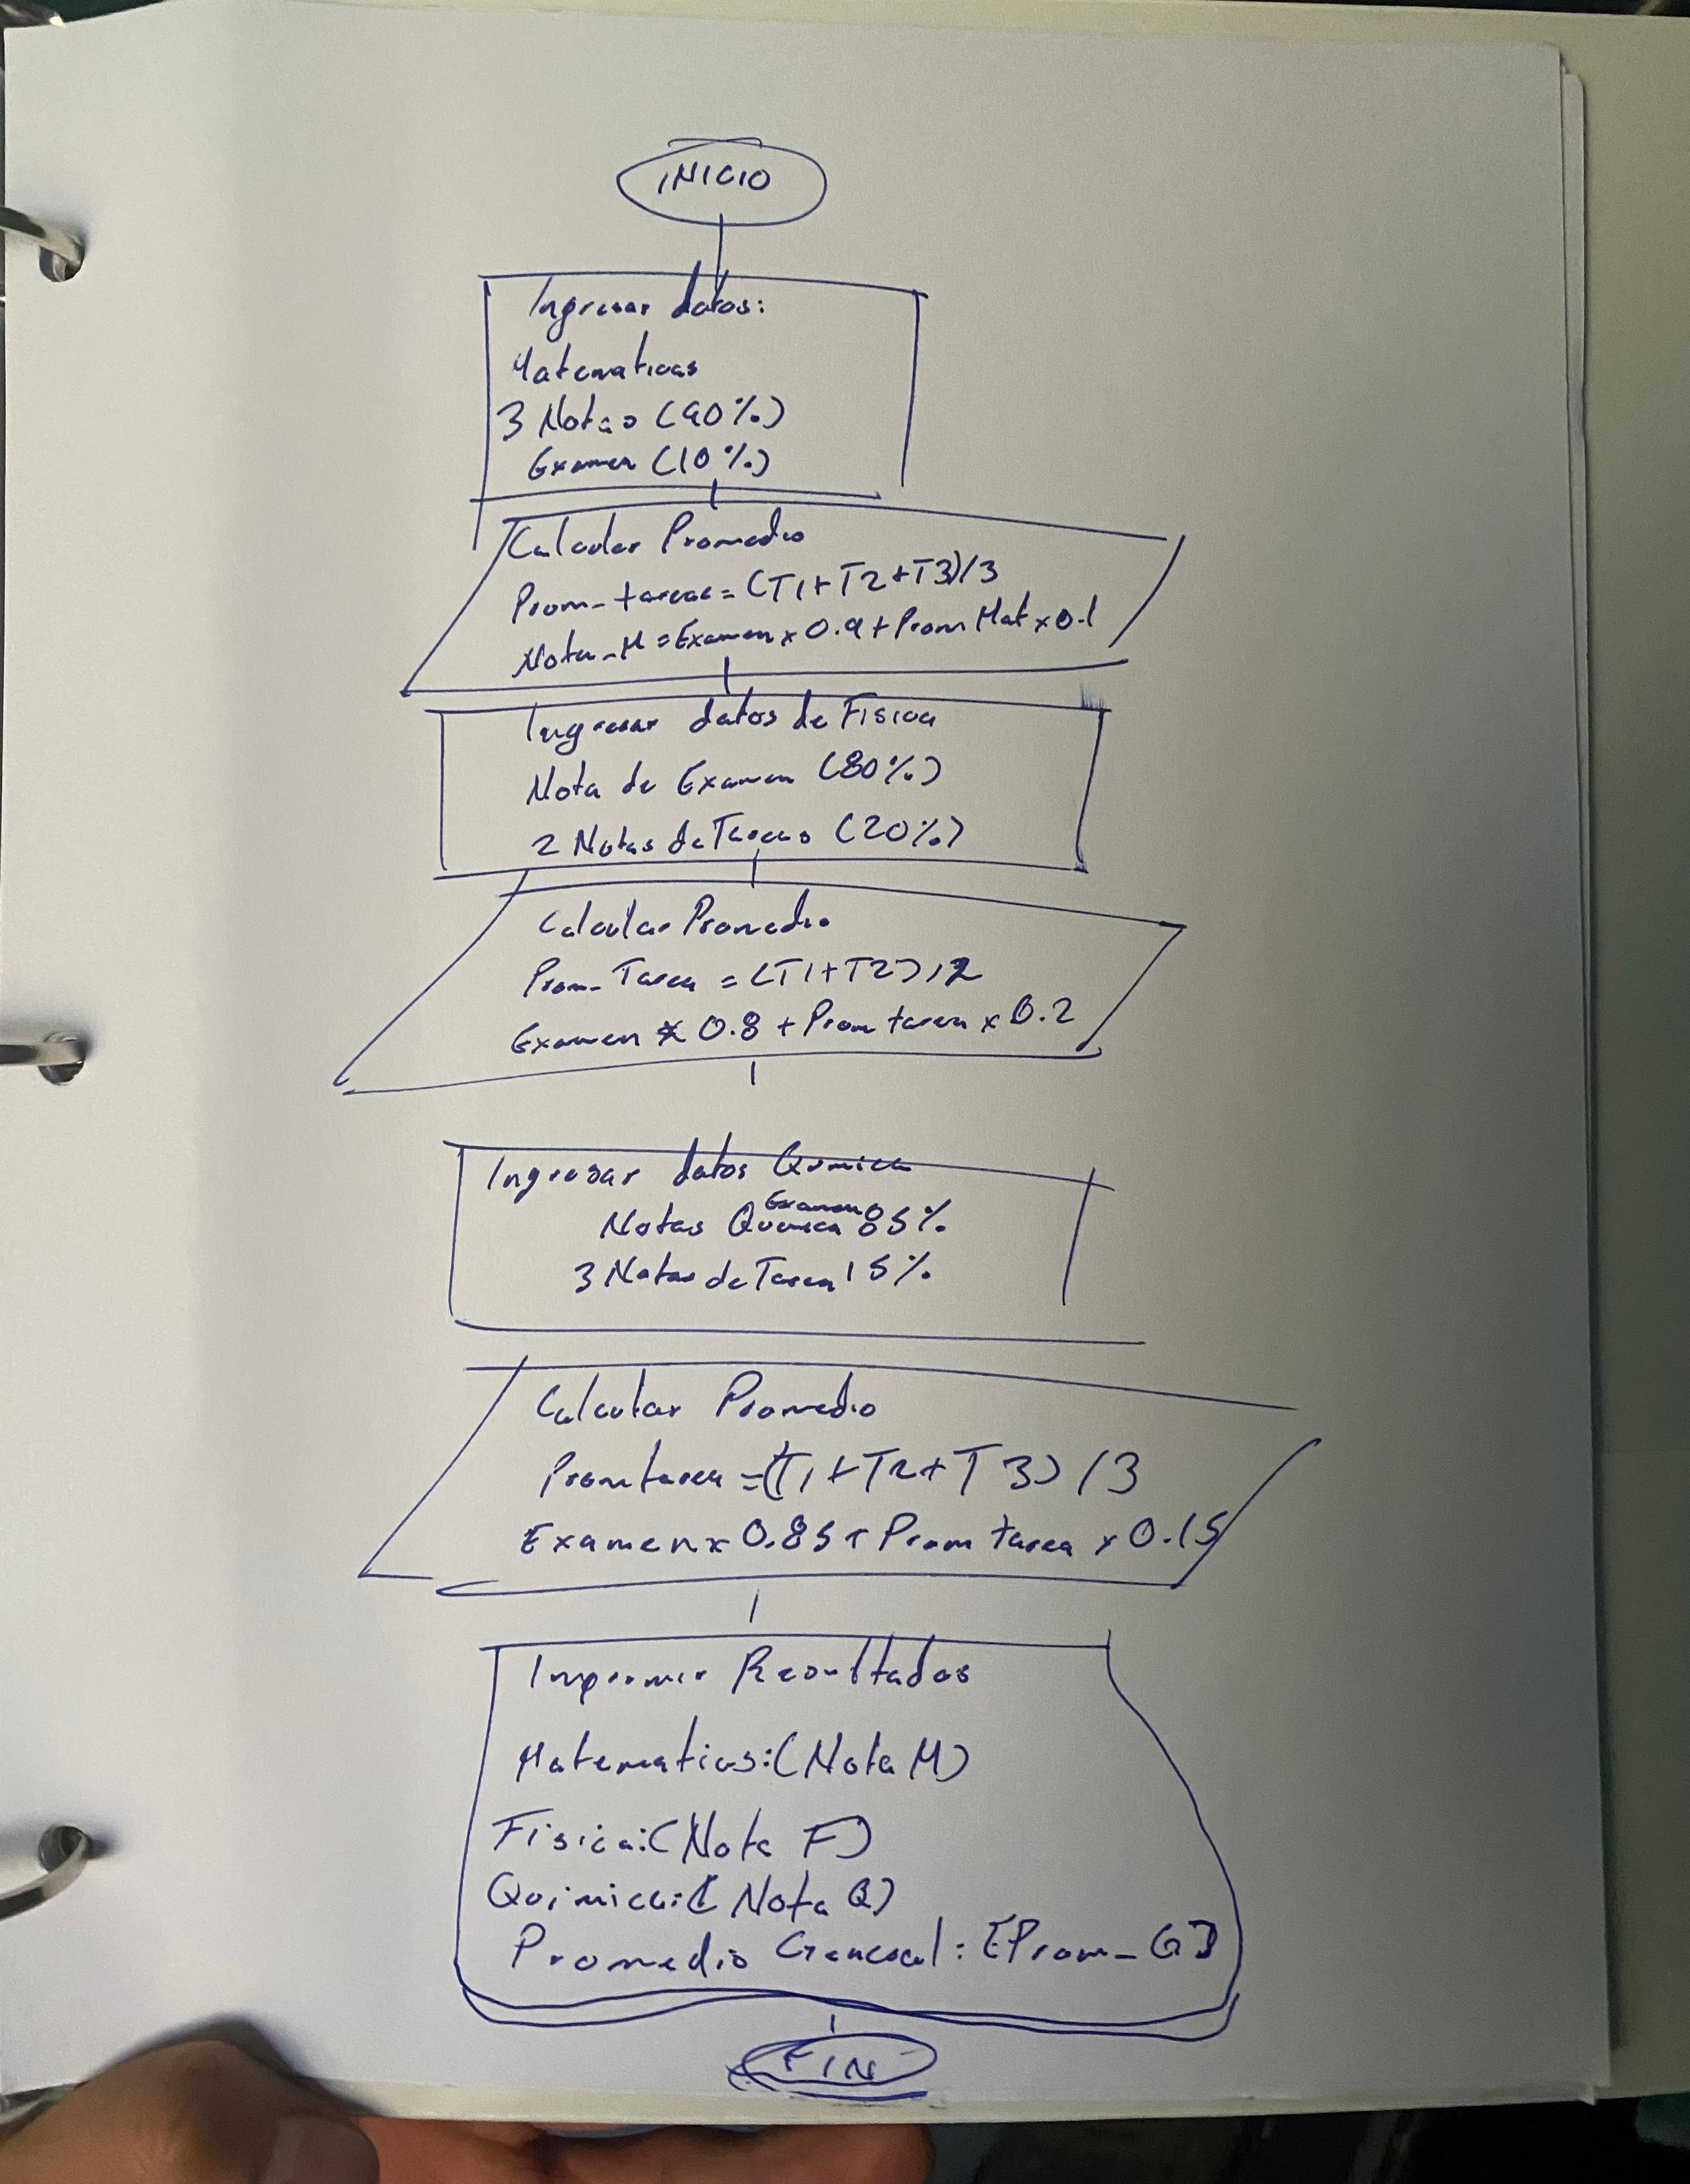 INICIO
Ingresar datos:
Matematicas
3 Notas (90%)
Examen (10%)
Calcular Promedio
Prom_tareas = (T1+T2+T3)/3
Nota_M = Examen x 0.9 + Prom Mat x 0.1
Ingresar datos de Fisica
Nota de Examen (80%)
2 Notas de Tareas (20%)
Calcular Promedio
Prom_Tarea = (T1+T2)/2
Examen x 0.8 + Prom tarea x 0.2
Ingresar datos Quimica
Examen
Notas Quimica 85%
3 Notas de Tarea 15%
Calcular Promedio
Prom tarea = (T1+T2+T3)/3
Examen x 0.85 + Prom tarea x 0.15
Imprimir Resultados
Matematicas: (Nota M)
Fisica: (Nota F)
Quimica: (Nota Q)
Promedio General: [Prom_G]
FIN